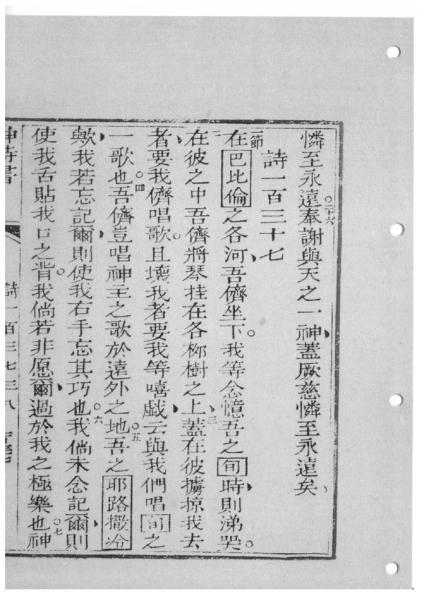 憐至永遠。二十六奉謝與天之一神蓋厥慈憐至永遠矣。
詩一百三十七
一節在巴比倫之各河、吾儕坐下。我等念憶吾之旬時則涕哭。
二在彼之中吾儕將琴挂在各柳樹之上。三蓋在彼擄掠我去
者、要我儕唱歌。且壞我者要我等嘻戲云、與我們唱旬之
一歌也。四吾儕豈唱神主之歌於遠外之地。五吾之耶路撒冷
歟、我若忘記爾、則使我右手忘其巧也。六我倘未念記爾、則
使我舌貼我口之。我倘若非愿爾過於我之極樂也。七神
神詩書 詩一百三七三八